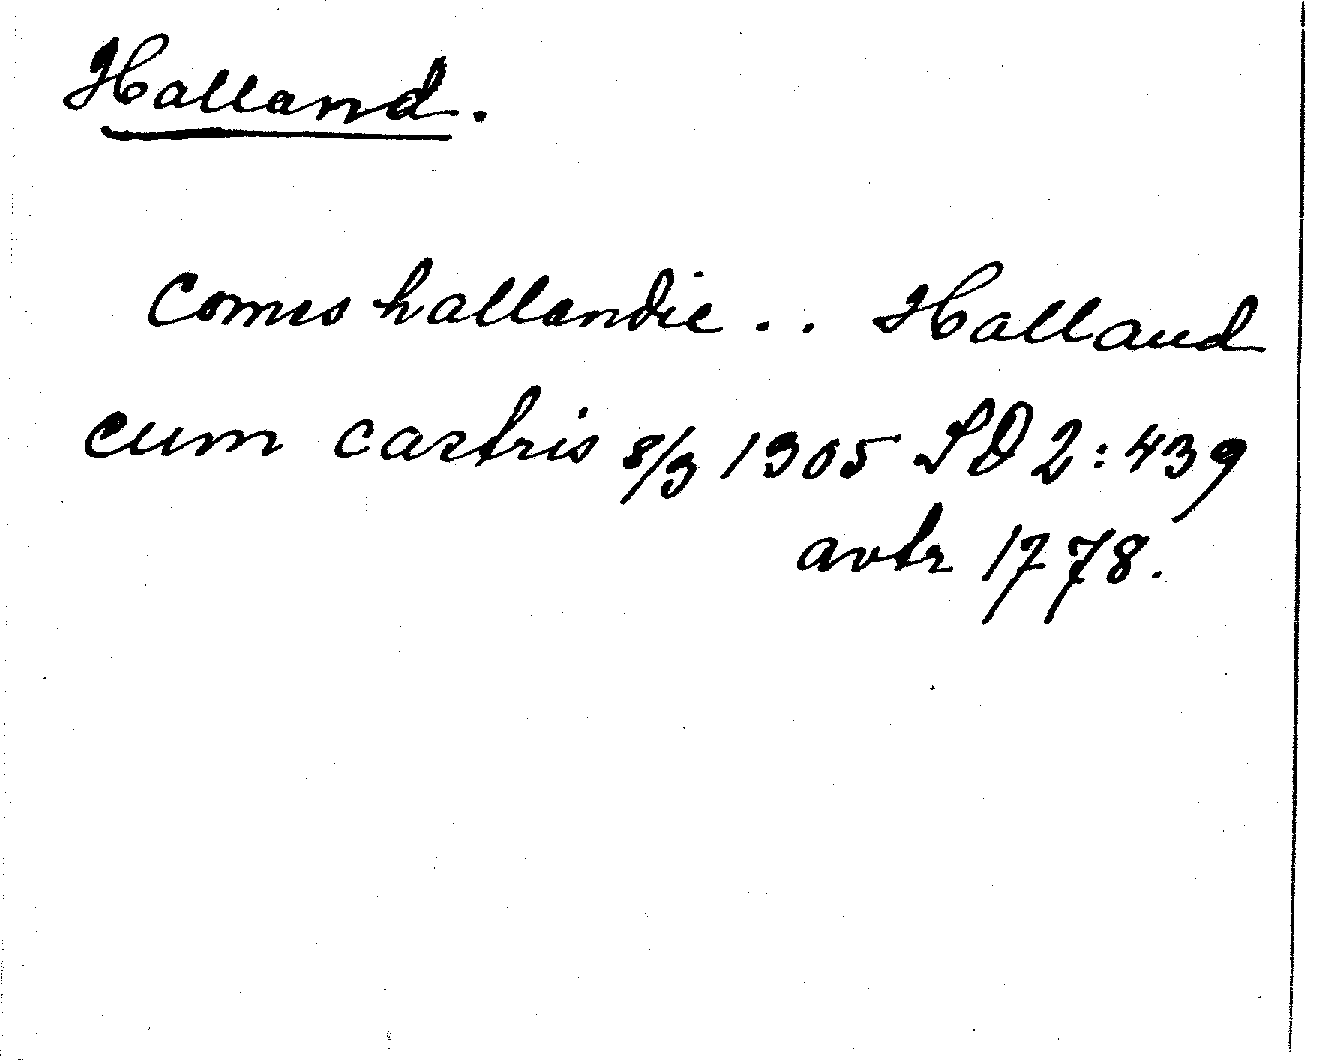 Halland.
Comes hallandie . . Halland
cum castris 8/3 1305 SD 2:439
avtr 1778.